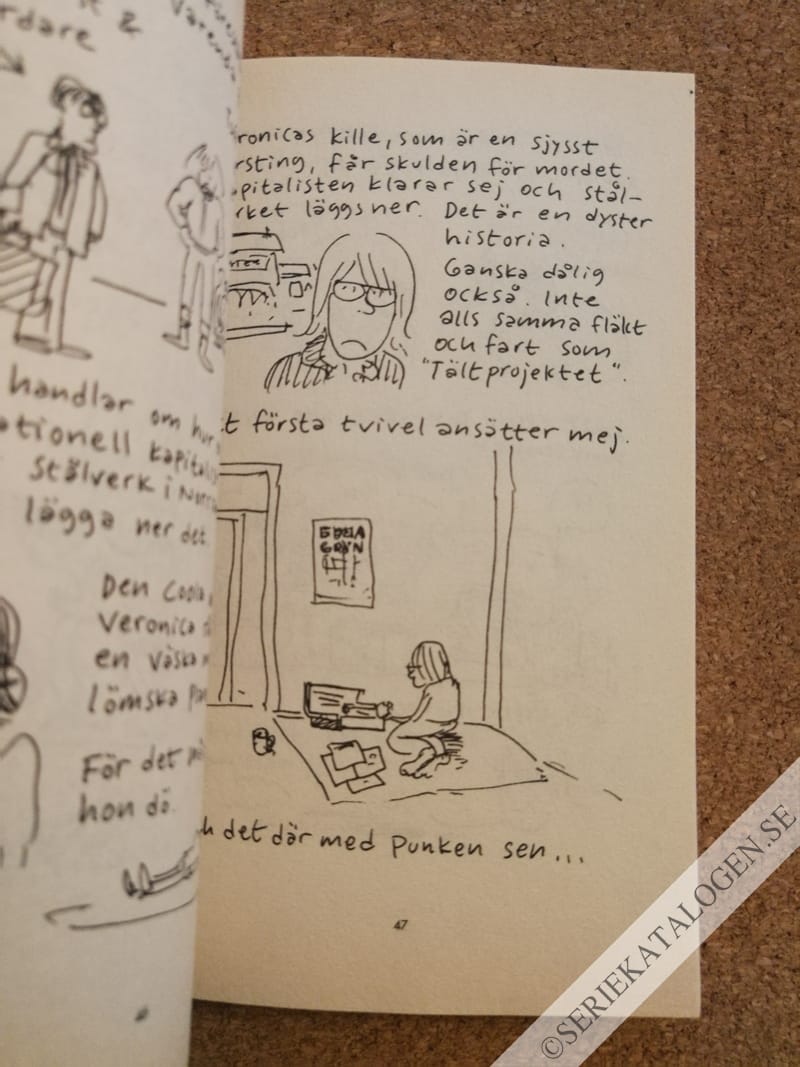 rdare
handlar om hur
ationell kapital
stålverk i Nor
lägga ner det
Den coola
Veronica
en väska
lömska
För det
hon dö.
ronicas kille, som är en sjysst
rsting, får skulden för mordet.
apitalisten klarar sej och stål-
rket läggs ner. Det är en dyster
historia.
Ganska dålig
också. Inte
alls samma fläkt
och fart som
"Tältprojektet".
t första tvivel ansätter mej.
EBBA
GRÖN
h det där med punken sen...
47
©SERIEKATALOGEN.SE